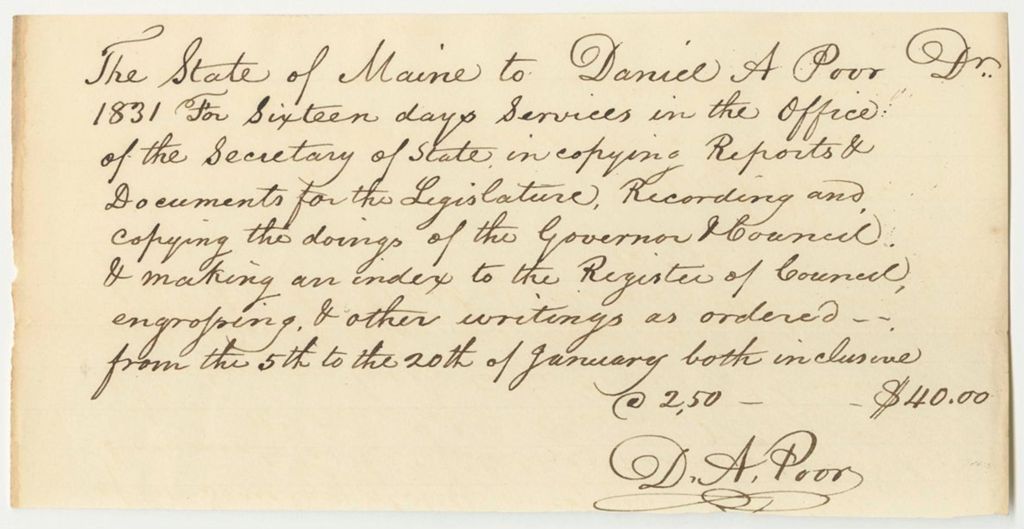 The State of Maine to Daniel A Poor Dr.
1831 For Sixteen days Services in the Office
of the Secretary of State, in copying Reports &
Documents for the Legislature, Recording and
copying the doings of the Governor & Council.
& making an index to the Register of Council,
engrossing, & other writings as ordered --.
from the 5th to the 20th of January both inclusive
@ 2,50 – – $40.00
D. A. Poor